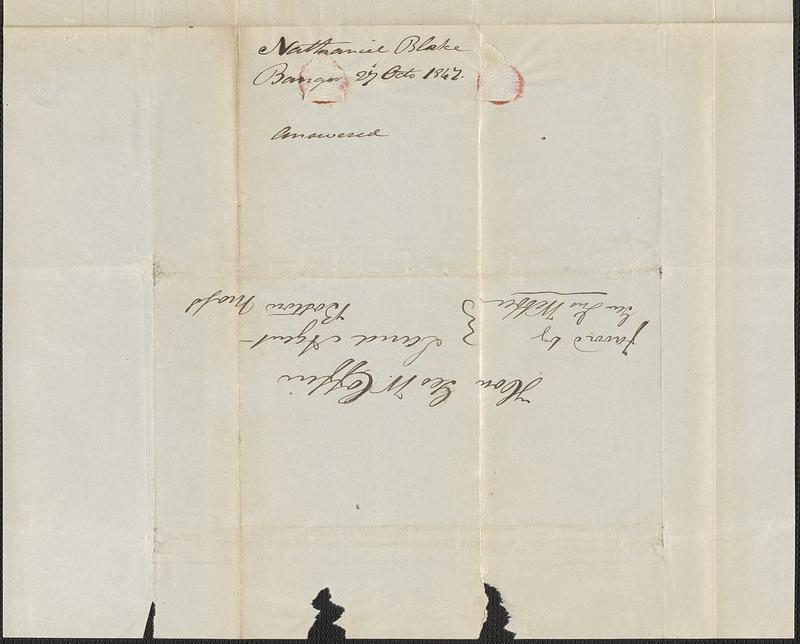 Nathaniel Blake
Bangor 27 Octo 1847.
answered
Hon Geo W. Coffin
Land Agent
Boston Mass
Favord by
Gen Jno Webber